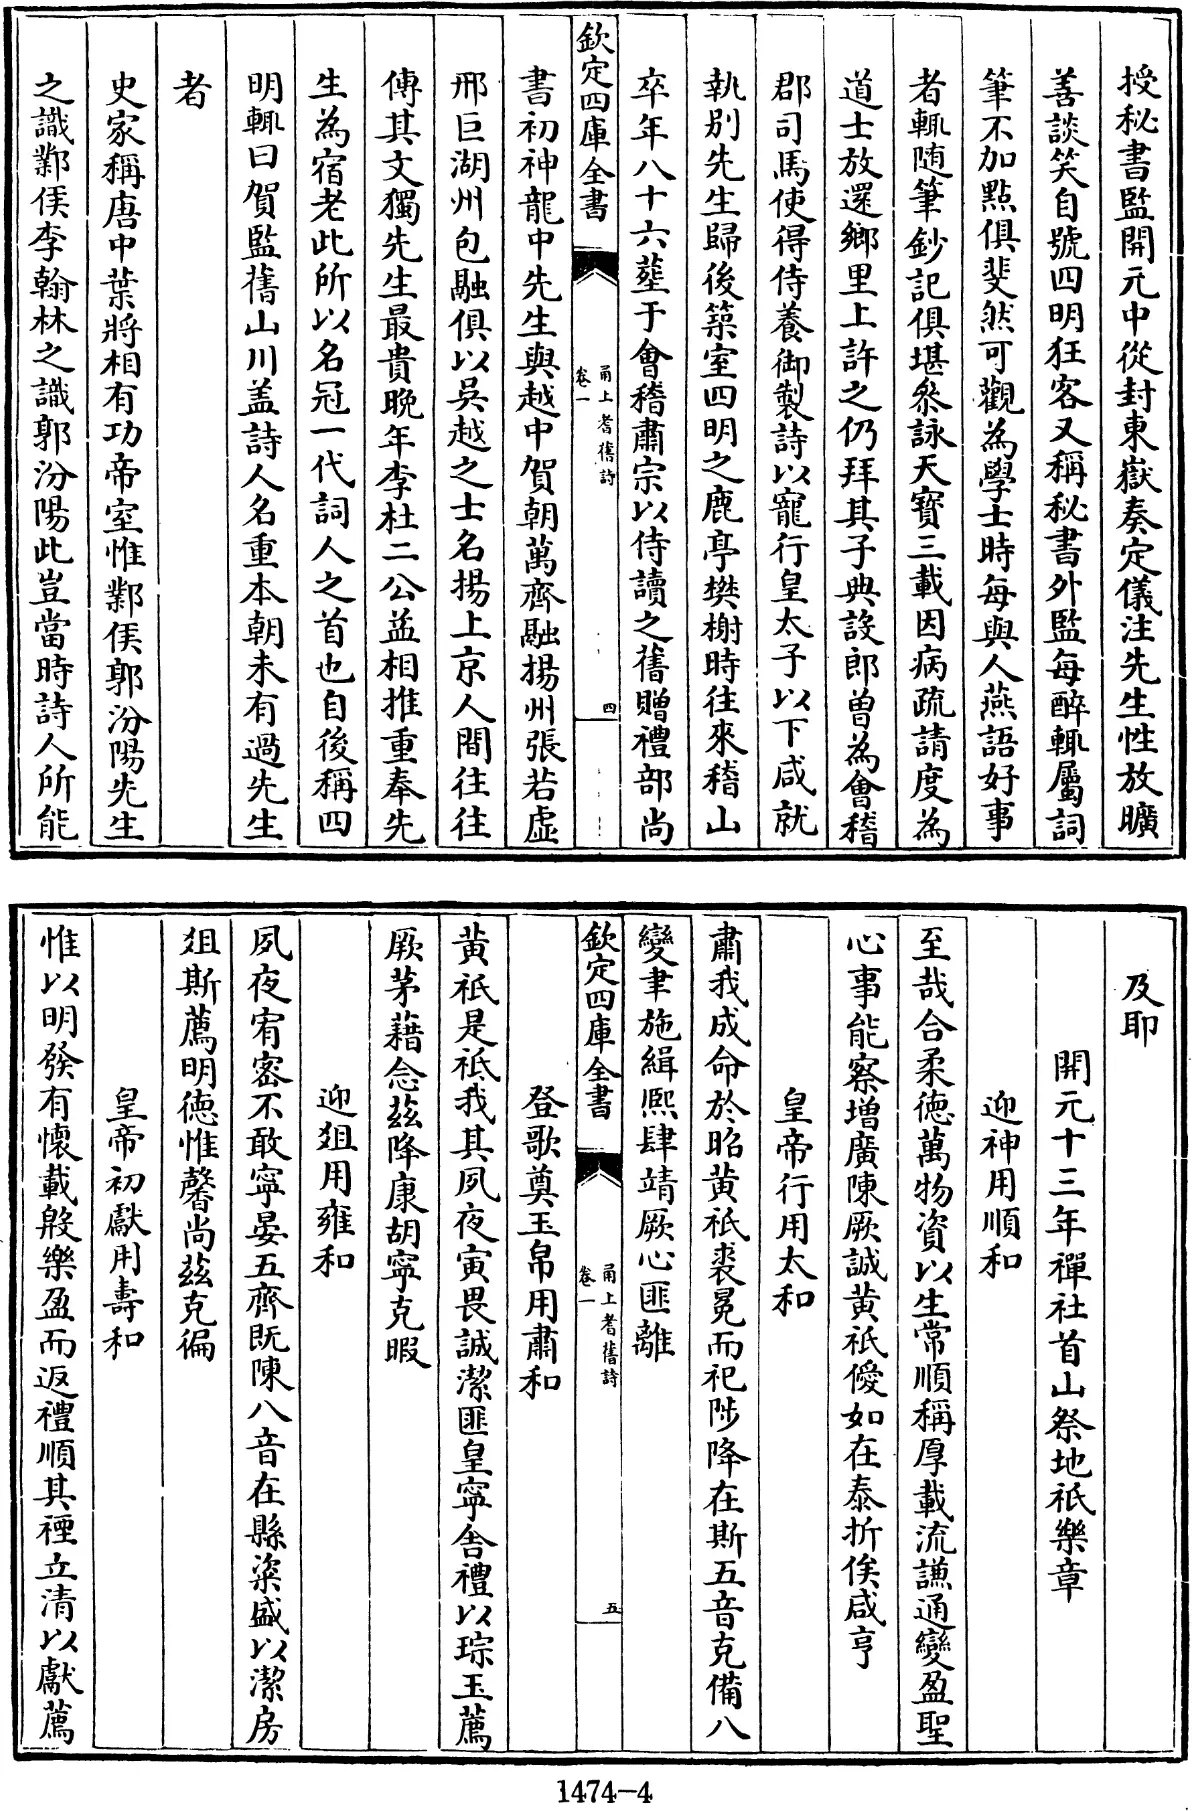 授秘書監開元中從封東嶽奏定儀注先生性放曠
善談笑自號四明狂客又稱秘書外監每醉輒屬詞
筆不加點俱斐然可觀為學士時每與人燕語好事
者輒随筆鈔記俱堪叅詠天寳三載因病疏請度為
道士放還鄉里上許之仍拜其子典設郎曽為會稽
郡司馬使得侍養御製詩以寵行皇太子以下咸就
執别先生歸後築室四明之鹿亭樊榭時往來稽山
卒年八十六塟于會稽肅宗以侍讀之舊贈禮部尚
欽定四庫全書
甬上耆舊詩
卷一
四
書初神龍中先生與越中賀朝萬齊融揚州張若虛
邢巨湖州包融俱以吳越之士名揚上京人間往往
傳其文獨先生最貴晚年李杜二公益相推重奉先
生為宿老此所以名冠一代詞人之首也自後稱四
明輒曰賀監舊山川盖詩人名重本朝未有過先生
者
史家稱唐中葉將相有功帝室惟鄴侯郭汾陽先生
之識鄴侯李翰林之識郭汾陽此豈當時詩人所能
及耶
開元十三年禪社首山祭地祇樂章
迎神用順和
至哉合柔徳萬物資以生常順稱厚載流謙通變盈聖
心事能察増廣陳厥誠黄祇僾如在泰折俟咸亨
皇帝行用太和
肅我成命於昭黄祇裘冕而祀陟降在斯五音克備八
變聿施緝熙肆靖厥心匪離
欽定四庫全書
甬上耆舊詩
卷一
五
登歌奠玉帛用肅和
黄祇是祗我其夙夜寅畏誠潔匪皇寧舍禮以琮玉薦
厥茅藉念兹降康胡寧克暇
迎俎用雍和
夙夜宥宻不敢寧晏五齊既陳八音在縣粢盛以潔房
俎斯薦明徳惟馨尚兹克徧
皇帝初獻用壽和
惟以明發有懷載殷樂盈而返禮順其禋立清以獻薦
1474-4